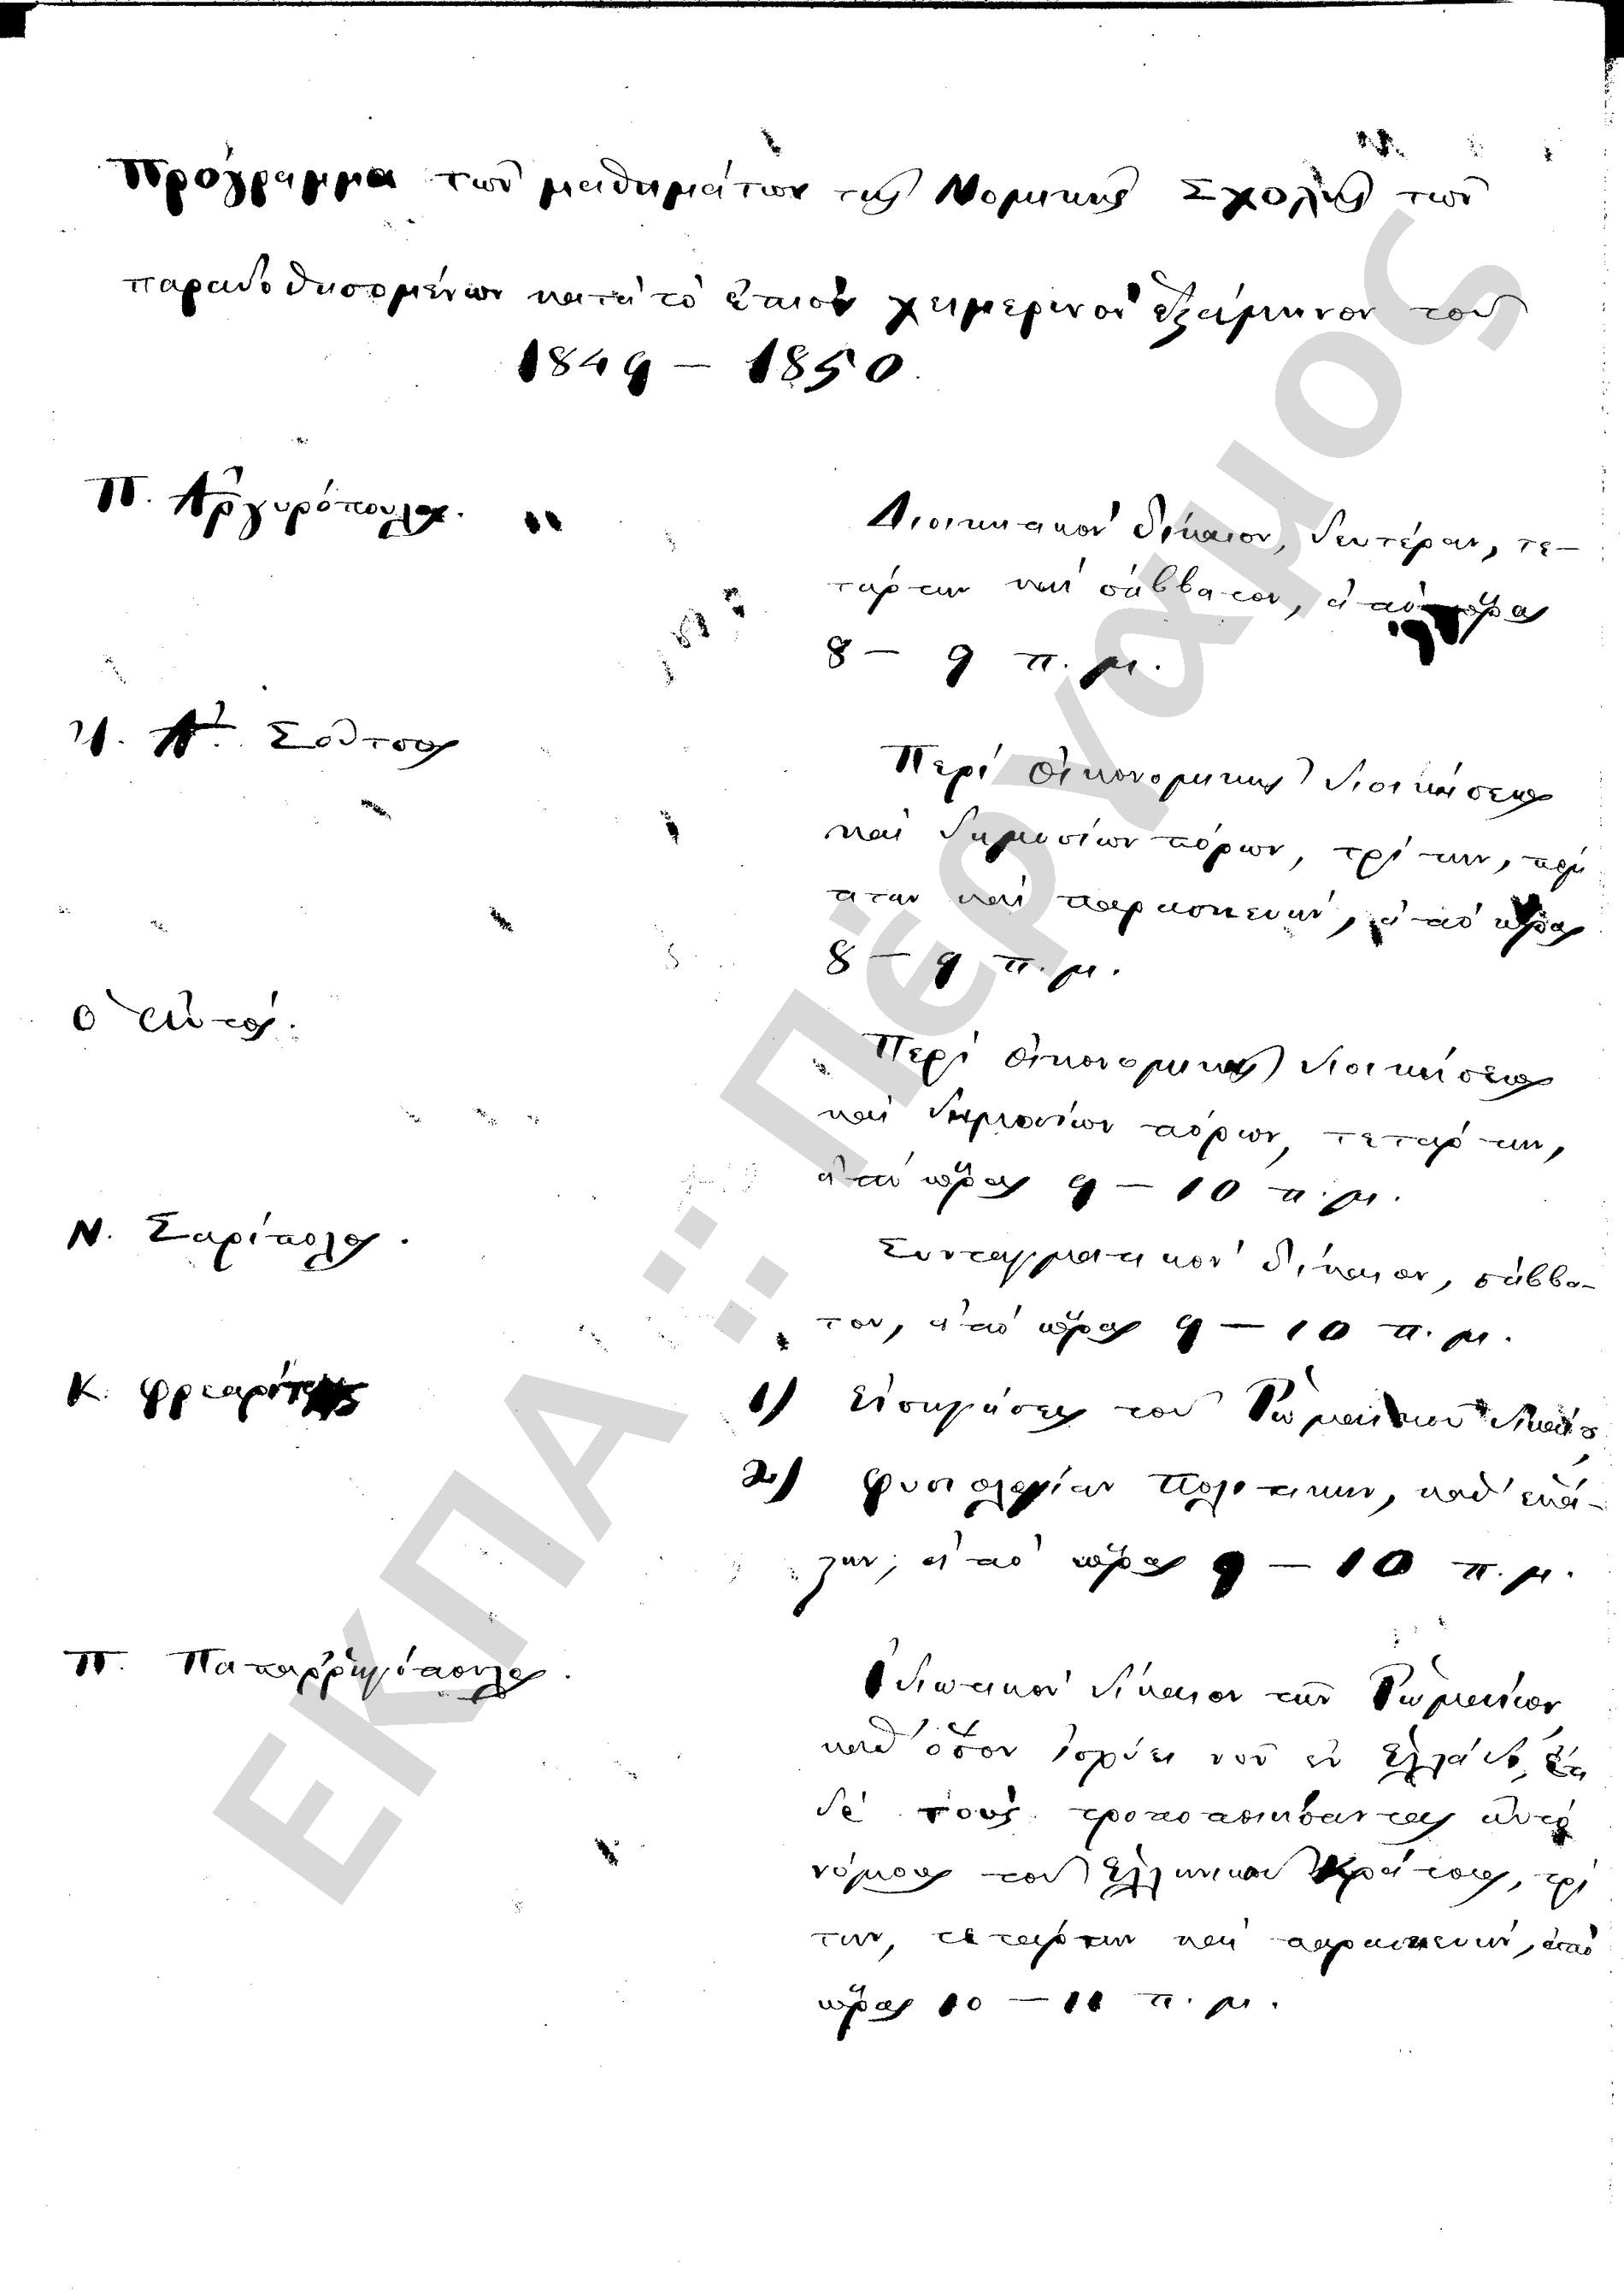 Πρόγραμμα τῶν μαθημάτων τῆς Νομικῆς Σχολῆς τῶν
παραδοθησομένων κατὰ τὸ ἐπιὸν χειμερινὸν ἑξάμηνον τοῦ
1849 – 1850
Π. Ἀργυρόπουλος. "
Διοικητικὸν δίκαιον, δευτέραν, τε-
τάρτην καὶ σάββατον, ἀπὸ ὥρας
8 – 9 π. μ.
Ἰ. Ἀ. Σοῦτσος
Περὶ οἰκονομικῆς διοικήσεως
καὶ δημοσίων πόρων, τρίτην, πέμ
πτην καὶ παρασκευήν, ἀπὸ ὥρας
8 – 9 π. μ.
Ὁ αὐτός.
Περὶ οἰκονομικῆς διοικήσεως
καὶ δημοσίων πόρων, τετάρτην,
ἀπὸ ὥρας 9 – 10 π. μ.
Ν. Σαρίπολος.
Συνταγματικὸν δίκαιον, σάββα-
τον, ἀπὸ ὥρας 9 – 10 π. μ.
Κ. Φρεαρίτης
1) Εἰσηγήσεις τοῦ Ῥωμαϊκοῦ δικαίου
2) φυσιολογίαν πολιτικήν, καθ' ἑκά-
την, ἀπὸ ὥρας 9 – 10 π. μ.
Π. Παπαῤῥηγόπουλος.
Ἰδιωτικὸν δίκαιον τῶν Ῥωμαίων
καθ' ὅσον ἰσχύει νῦν ἐν Ἑλλάδι,
δὲ τοὺς τροποποιήσαντας αὐτὸ
νόμους τοῦ Ἑλληνικοῦ Κράτους, τρί
την, τετάρτην καὶ παρασκευήν, ἀπὸ
ὥρας 10 – 11 π. μ.
ΕΚΠΑ :: Πέργαμος